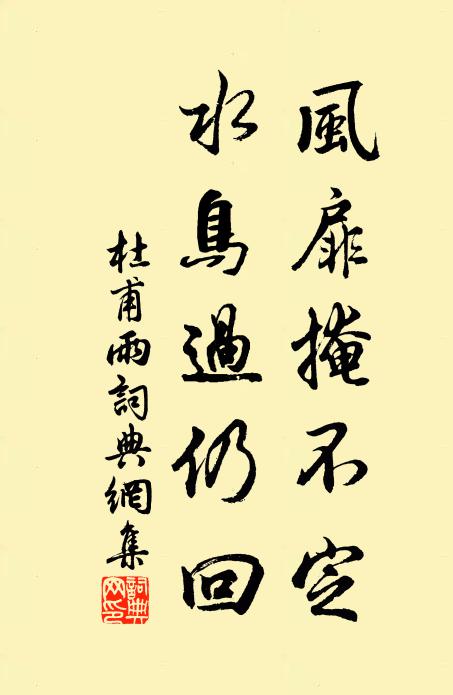 風扉掩不定
水鳥過仍回
杜甫雨詞典網集
詞典網印